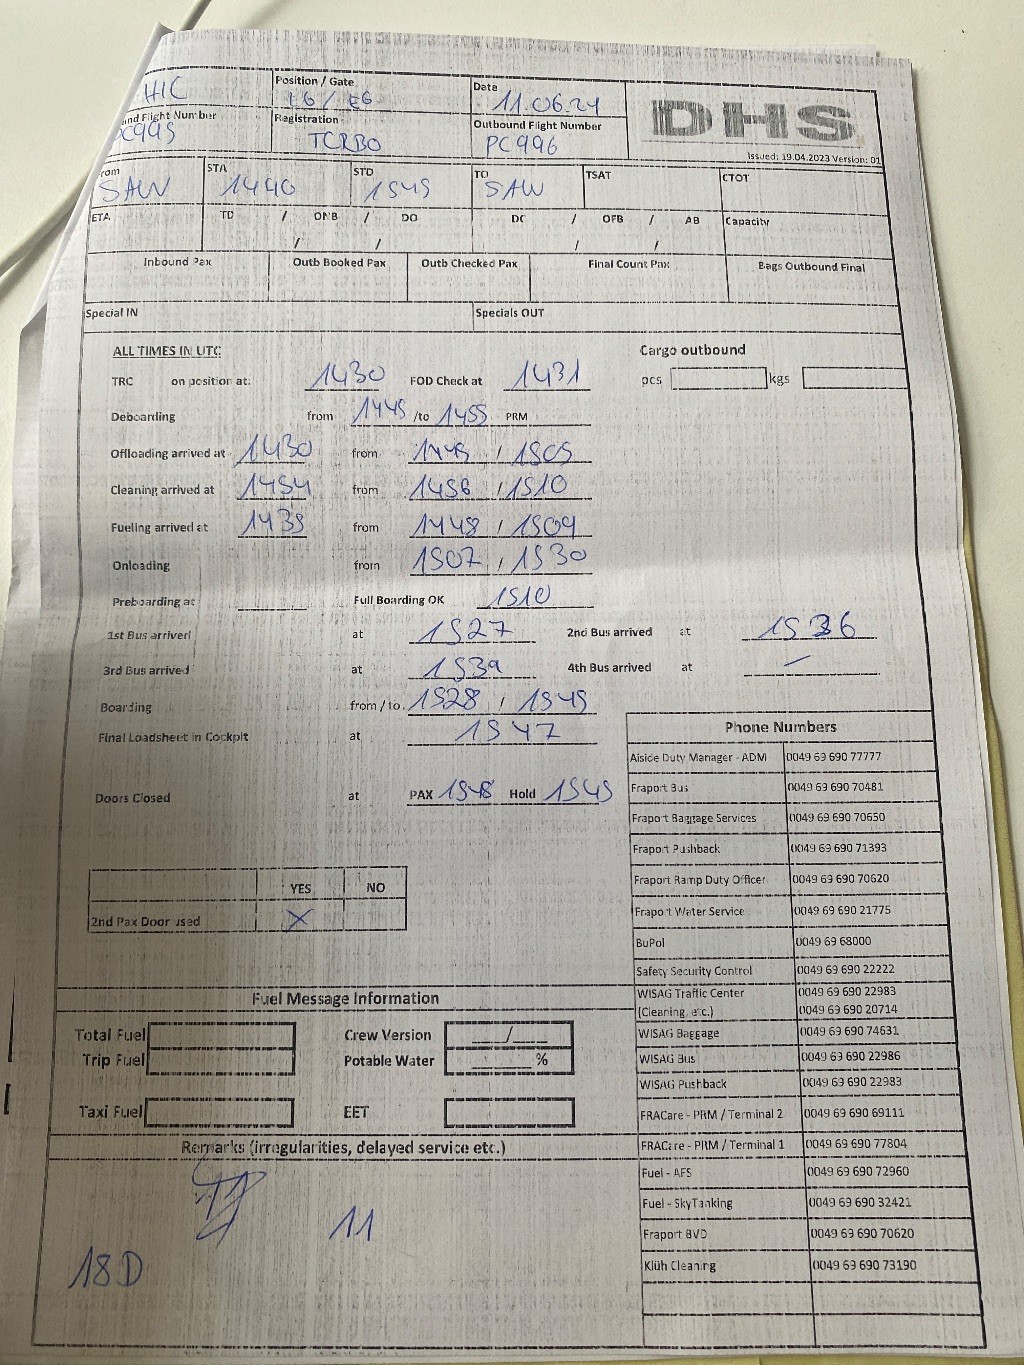 HIC Position / Gate E6 / E6 Date 11.06.24 DHS
und Flight Number PC995 Registration TCRBO Outbound Flight Number PC996
Issued: 19.04.2023 Version: 01
From SAW STA 1440 STD 1545 TO SAW TSAT CTOT
ETA TD / ONB / DO DC / OFB / AB Capacity
/ / / /
Inbound Pax Outb Booked Pax Outb Checked Pax Final Count Pax Bags Outbound Final
Special IN Specials OUT
ALL TIMES IN UTC Cargo outbound
TRC on position at: 1430 FOD Check at 1431 pcs kgs
Deboarding from 1445 /to 1455 PRM
Offloading arrived at 1430 from 1445 / 1505
Cleaning arrived at 1454 from 1456 / 1510
Fueling arrived at 1435 from 1448 / 1509
Onloading from 1507 / 1530
Preboarding at Full Boarding OK 1510
1st Bus arrived at 1527 2nd Bus arrived at 1536
3rd Bus arrived at 1539 4th Bus arrived at –
Boarding from / to 1528 / 1545
Final Loadsheet in Cockpit at 1547
Doors Closed at PAX 1548 Hold 1545
YES NO
2nd Pax Door used X
Phone Numbers
Aiside Duty Manager - ADM 0049 69 690 77777
Fraport Bus 0049 69 690 70481
Fraport Baggage Services 0049 69 690 70650
Fraport Pushback 0049 69 690 71393
Fraport Ramp Duty Officer 0049 69 690 70620
Fraport Water Service 0049 69 690 21775
BuPol 0049 69 68000
Safety Security Control 0049 69 690 22222
WISAG Traffic Center 0049 69 690 22983
(Cleaning, etc.) 0049 69 690 20714
WISAG Baggage 0049 69 690 74631
WISAG Bus 0049 69 690 22986
WISAG Pushback 0049 69 690 22983
FRACare - PRM / Terminal 2 0049 69 690 69111
FRACare - PRM / Terminal 1 0049 69 690 77804
Fuel - AFS 0049 69 690 72960
Fuel - SkyTanking 0049 69 690 32421
Fraport BVD 0049 69 690 70620
Klüh Cleaning 0049 69 690 73190
Fuel Message Information
Total Fuel Crew Version /
Trip Fuel Potable Water %
Taxi Fuel EET
Remarks (irregularities, delayed service etc.)
11
18D